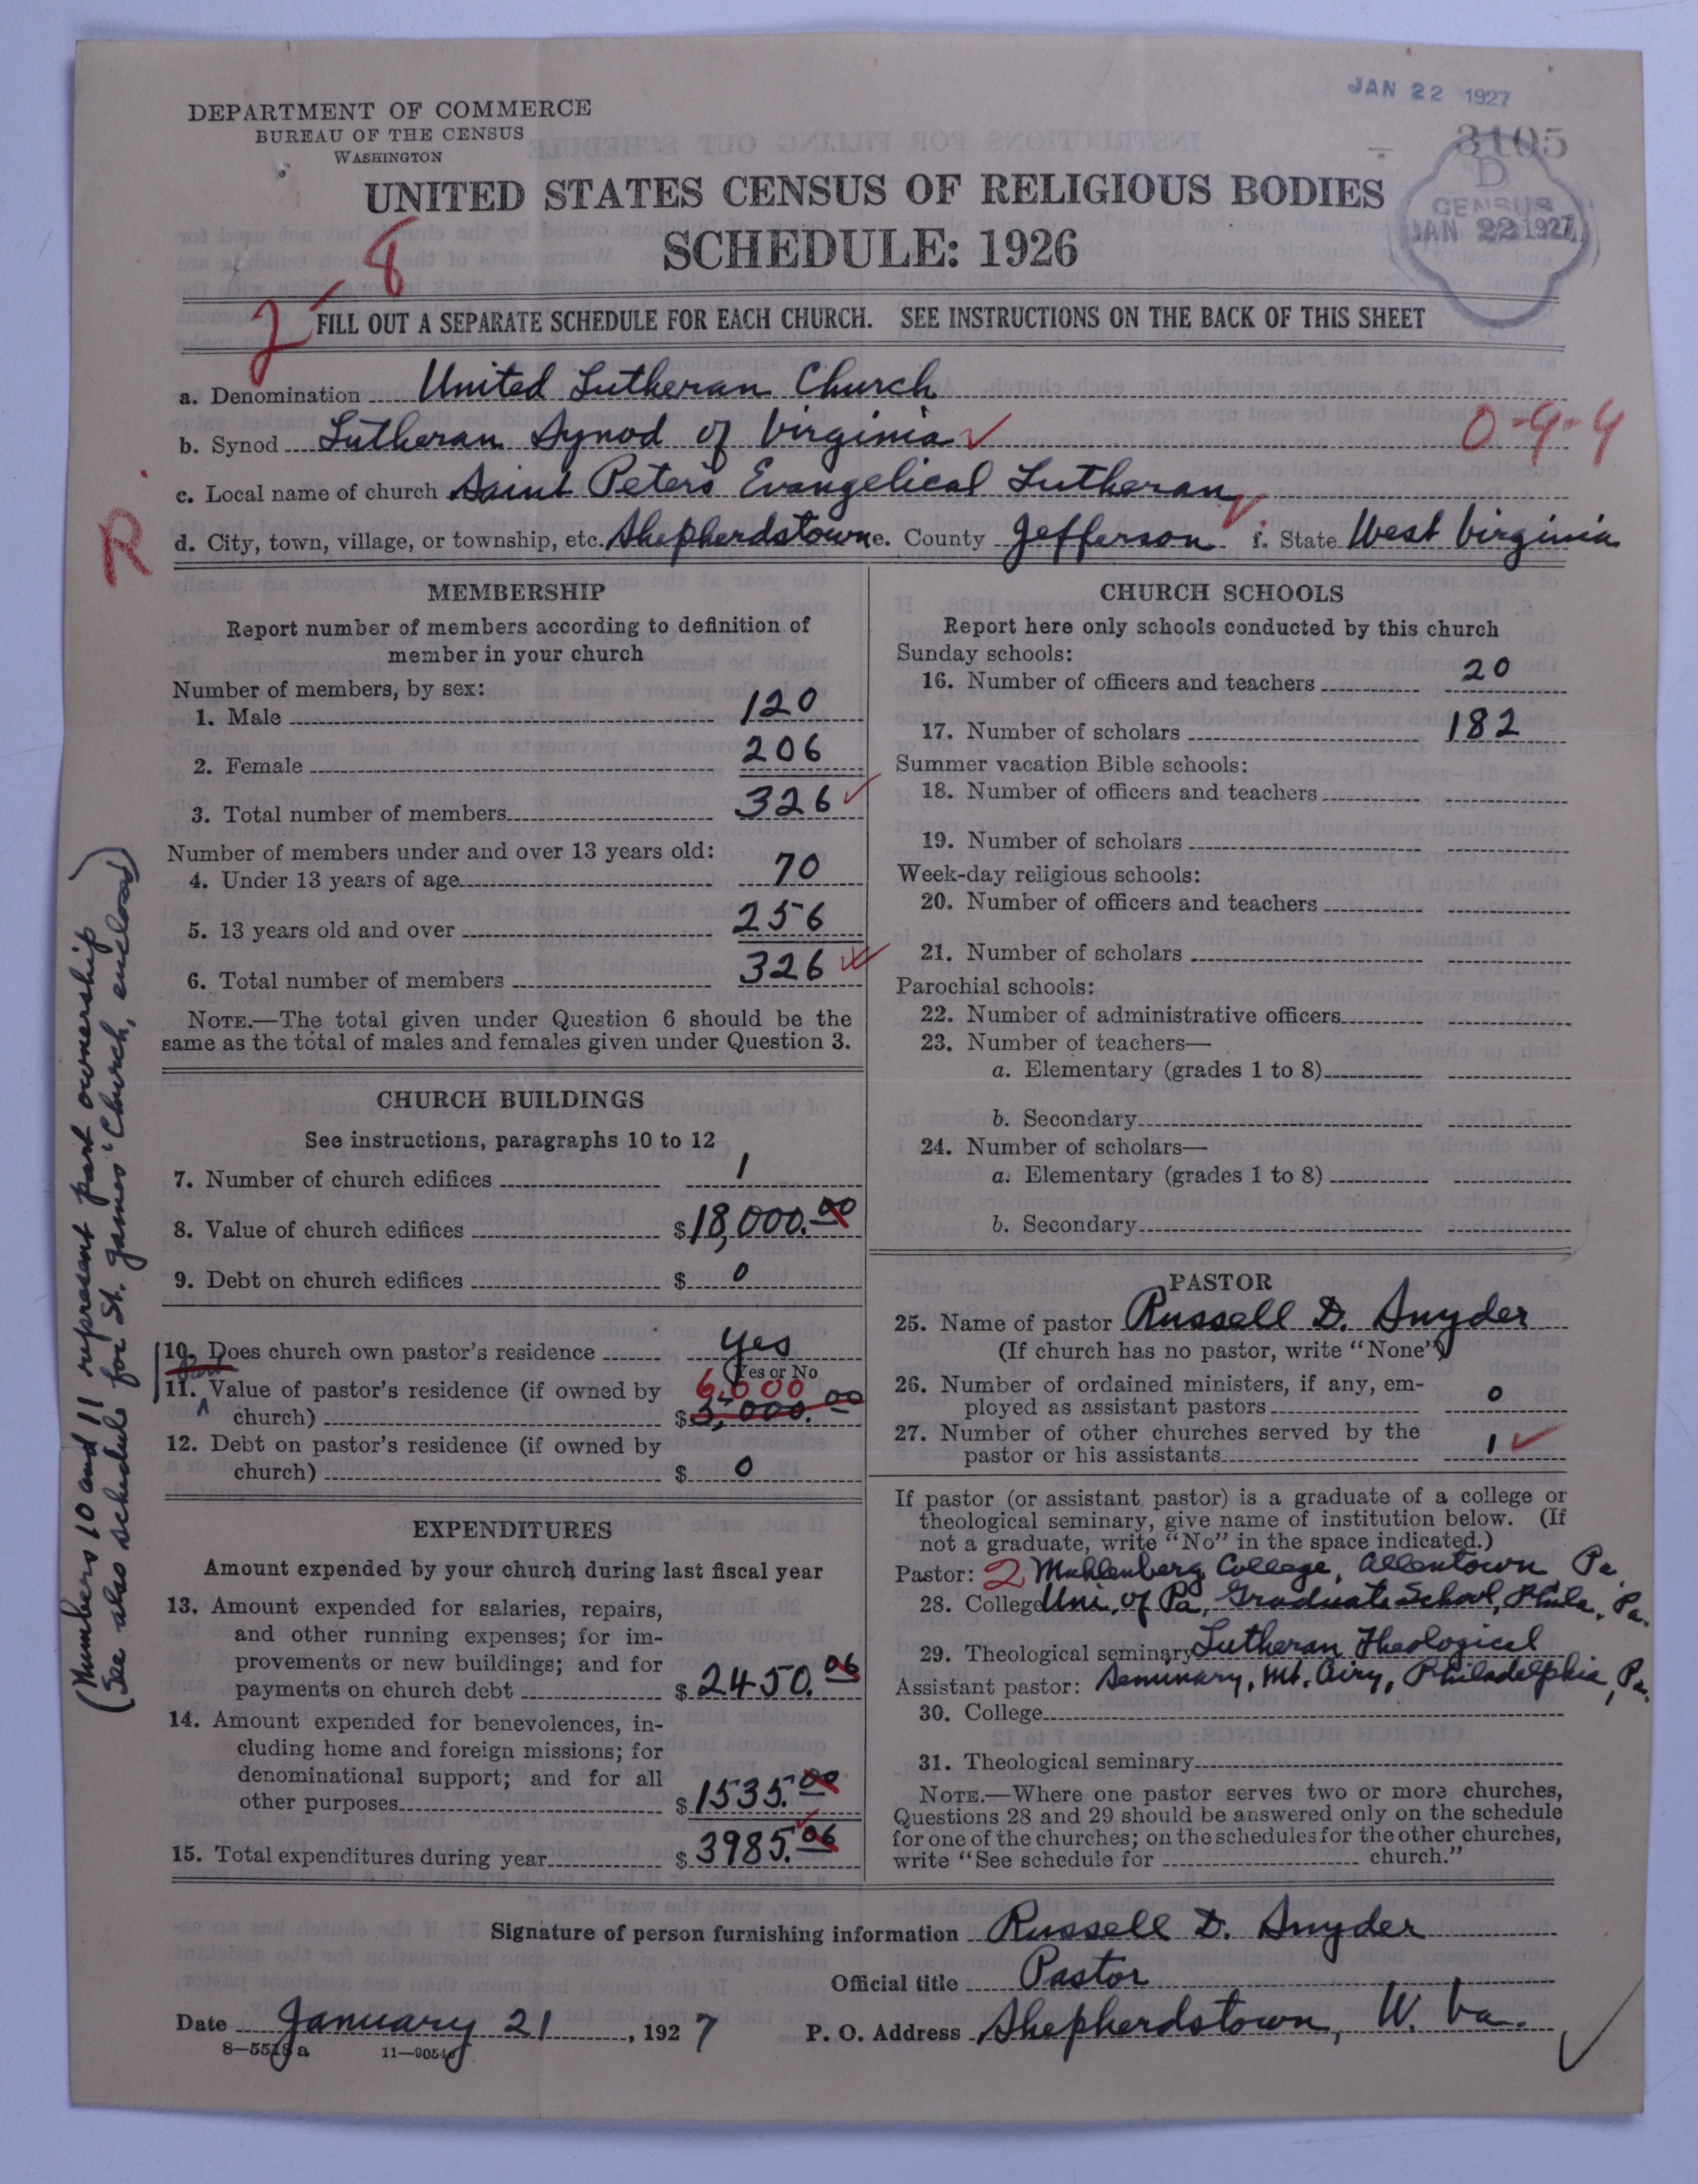 JAN 22 1927
DEPARTMENT OF COMMERCE
BUREAU OF THE CENSUS
WASHINGTON
3105
D
CENSUS
JAN 22 1927
UNITED STATES CENSUS OF RELIGIOUS BODIES
SCHEDULE: 1926
2-8
FILL OUT A SEPARATE SCHEDULE FOR EACH CHURCH. SEE INSTRUCTIONS ON THE BACK OF THIS SHEET
a. Denomination United Lutheran Church
b. Synod Lutheran Synod of Virginia ✓ 0-9-4
c. Local name of church Saint Peter's Evangelical Lutheran
R
d. City, town, village, or township, etc. Shepherdstown e. County Jefferson f. State West Virginia
MEMBERSHIP
Report number of members according to definition of
member in your church
Number of members, by sex:
1. Male 120
2. Female 206
3. Total number of members 326 ✓
Number of members under and over 13 years old:
4. Under 13 years of age 70
5. 13 years old and over 256
6. Total number of members 326 ✓
NOTE.—The total given under Question 6 should be the
same as the total of males and females given under Question 3.
CHURCH BUILDINGS
See instructions, paragraphs 10 to 12
7. Number of church edifices 1
8. Value of church edifices $18,000.00
9. Debt on church edifices $ 0
10. Does church own pastor's residence Yes
Yes or No
11. Value of pastor's residence (if owned by 6,000
church) $3,000.00
12. Debt on pastor's residence (if owned by
church) $ 0
(Numbers 10 and 11 represent part ownership
(See also schedule for St. James' Church, enclosed)
EXPENDITURES
Amount expended by your church during last fiscal year
13. Amount expended for salaries, repairs,
and other running expenses; for im-
provements or new buildings; and for
payments on church debt $2450.06
14. Amount expended for benevolences, in-
cluding home and foreign missions; for
denominational support; and for all
other purposes $1535.00
15. Total expenditures during year $3985.06
CHURCH SCHOOLS
Report here only schools conducted by this church
Sunday schools:
16. Number of officers and teachers 20
17. Number of scholars 182
Summer vacation Bible schools:
18. Number of officers and teachers
19. Number of scholars
Week-day religious schools:
20. Number of officers and teachers
21. Number of scholars
Parochial schools:
22. Number of administrative officers
23. Number of teachers—
a. Elementary (grades 1 to 8)
b. Secondary
24. Number of scholars—
a. Elementary (grades 1 to 8)
b. Secondary
PASTOR
25. Name of pastor Russell D. Snyder
(If church has no pastor, write "None")
26. Number of ordained ministers, if any, em-
ployed as assistant pastors 0
27. Number of other churches served by the
pastor or his assistants 1 ✓
If pastor (or assistant pastor) is a graduate of a college or
theological seminary, give name of institution below. (If
not a graduate, write "No" in the space indicated.)
Pastor: 2 Muhlenberg College, Allentown, Pa
28. College Uni. of Pa, Graduate School, Phila., Pa.
29. Theological seminary Lutheran Theological
Assistant pastor: Seminary, Mt. Airy, Philadelphia, Pa.
30. College
31. Theological seminary
NOTE.—Where one pastor serves two or more churches,
Questions 28 and 29 should be answered only on the schedule
for one of the churches; on the schedules for the other churches,
write "See schedule for church."
Signature of person furnishing information Russell D. Snyder
Official title Pastor
Date January 21, 1927 P. O. Address Shepherdstown, W. Va.
8—5518 a 11—90540